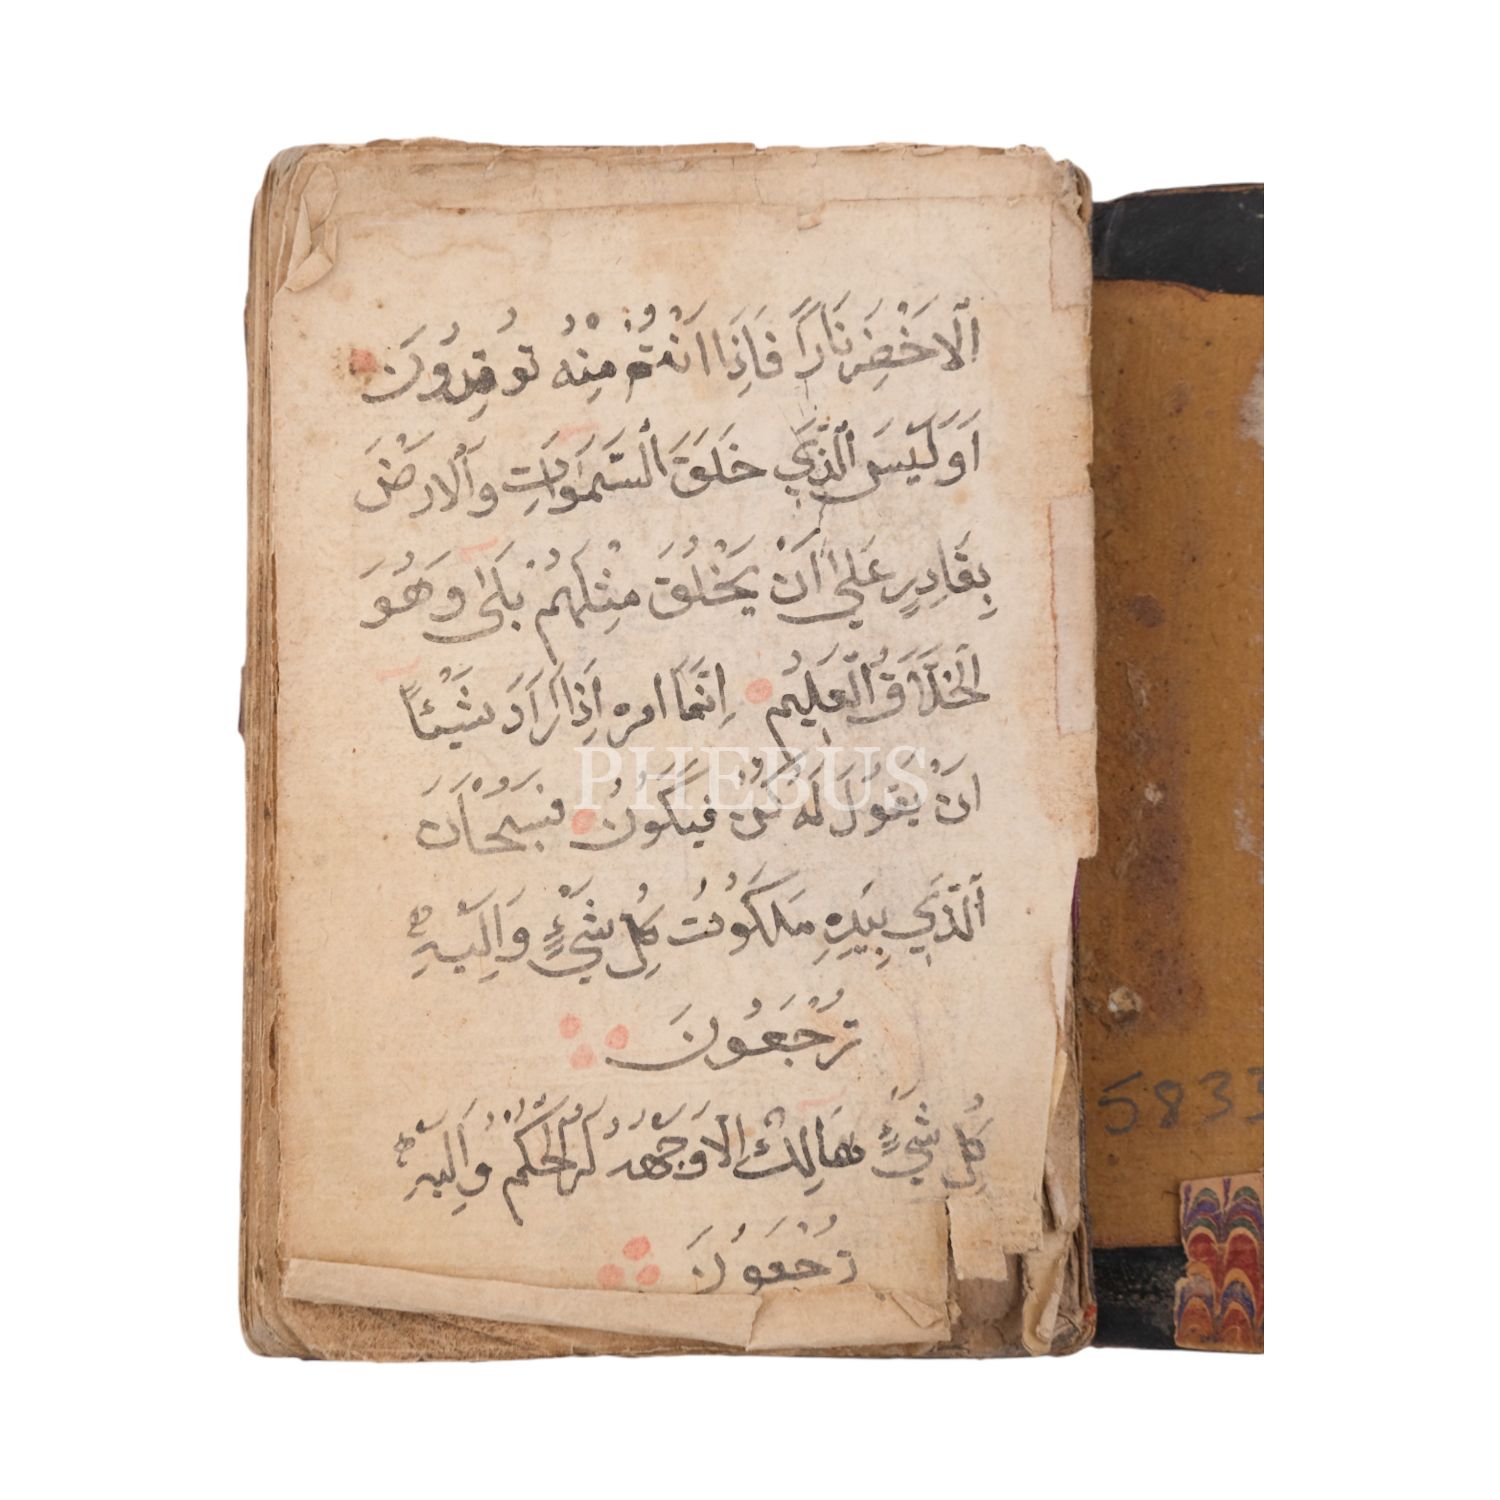 اَلْاَخْضَرِ نَارًا فَاِذَا اَنْتُمْ مِنْهُ تُوقِدُونَ
اَوَلَيْسَ الَّذِي خَلَقَ السَّمَوَاتِ وَالْاَرْضَ
بِقَادِرٍ عَلَي اَنْ يَخْلُقَ مِثْلَهُمْ بَلَى وَهُوَ
الْخَلَّاقُ الْعَلِيمُ اِنَّمَا امره اِذَا اَرَادَ شَيْئًا
اَنْ يَقُولَ لَهُ كُنْ فَيَكُونُ فَسُبْحَانَ
الَّذِي بِيَدِهِ مَلَكُوتُ كُلِّ شَيْءٍ وَاِلَيْهِ
تُرْجَعُونَ
كُلُّ شَيْءٍ هَالِكٌ اِلَّا وَجْهَهُ لَهُ الْحُكْمُ وَاِلَيْهِ
تُرْجَعُونَ
5833
PHEBUS